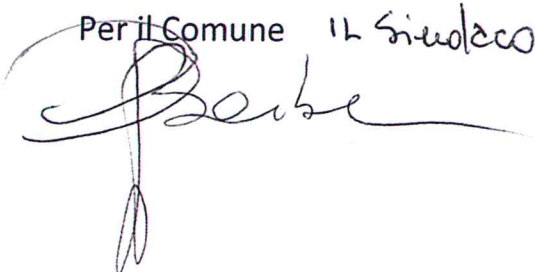 Per il Comune IL Sindaco